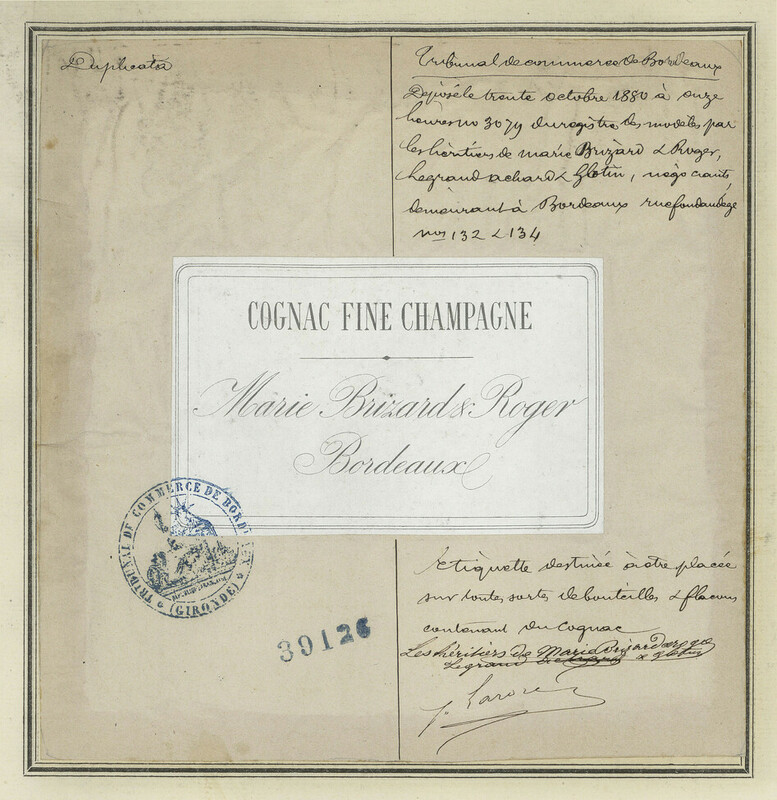 Duplicata
Tribunal de commerce de Bordeaux
Déposé le trente octobre 1880 à onze
heures no 3079 du registre des modèles par
les héritiers de marie Brizard & Roger,
Legrand achard & Glotin, négociants,
demeurant à Bordeaux rue fondaudège
nos 132 & 134
COGNAC FINE CHAMPAGNE
Marie Brizard & Roger
Bordeaux
TRIBUNAL DE COMMERCE DE BORDEAUX
(GIRONDE)
39126
Etiquette destinée à être placée
sur toutes sortes de bouteilles & flacons
contenant du Cognac
Les héritiers de Marie Brizard & Roger
Legrand & Glotin